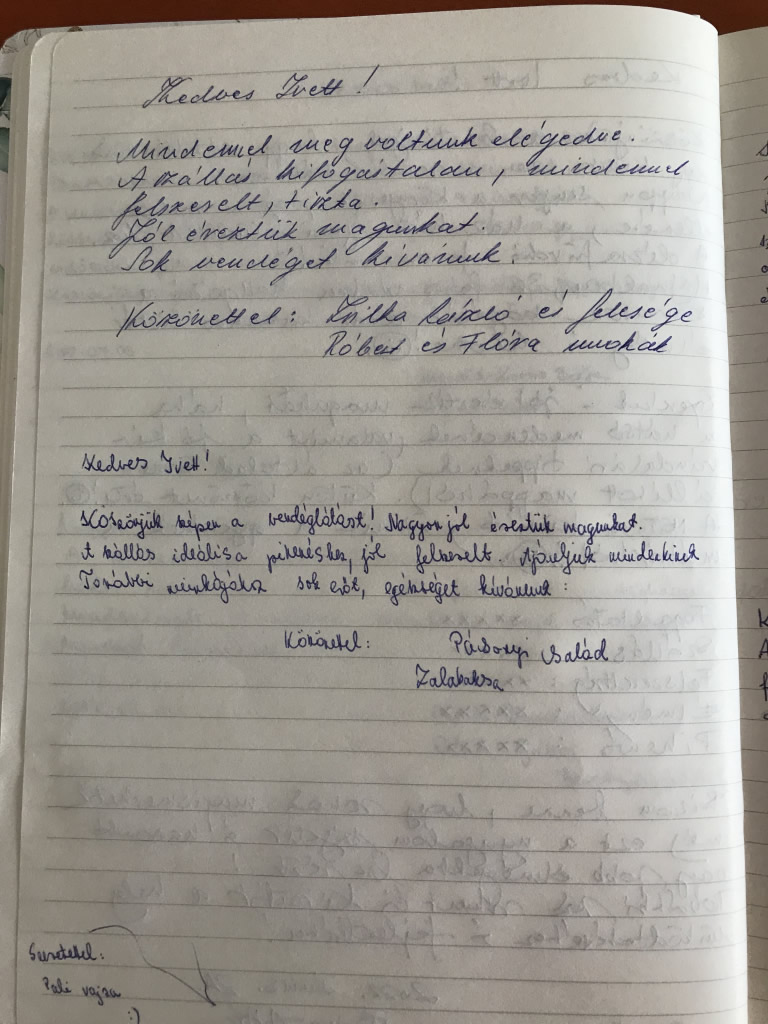 Kedves Ivett!
Mindennel meg voltunk elégedve.
A szállás kifogástalan, mindennel
felszerelt, tiszta.
Jól éreztük magunkat.
Sok vendéget kívánunk.
Köszönettel: László és felesége
Róbert és Flóra unokák
Kedves Ivett!
Köszönjük szépen a vendéglátást! Nagyon jól éreztük magunkat.
A szállás ideális a pihenéshez, jól felszerelt. Ajánljuk mindenkinek
További munkájához sok erőt, egészséget kívánunk:
Köszönettel: család
Zalabaksa
Szeretettel:
Pali vajza
:)